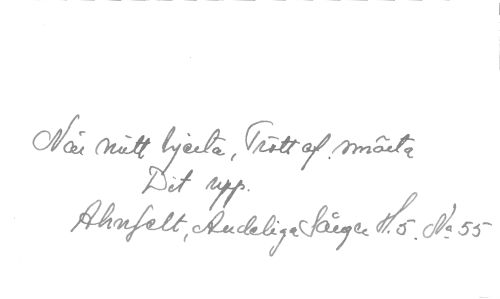 När mitt hjerta, Trött af smärta
Dit upp.
Ahnfelt, Andeliga Sånger H. 5. No 55